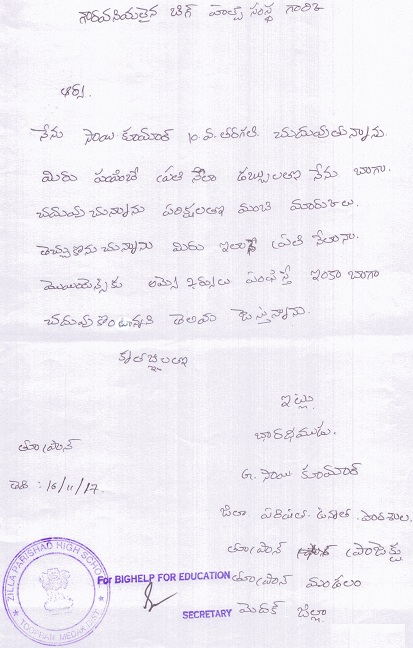 గౌరవనియులైన బిగ్ హెల్ప్ సంస్థ గారికి
ఆర్య.
నేను సాయి కుమార్ 10 వ తరగతి చదువుతున్నాను.
మిరు పంపించే ప్రతి నేలా డబ్బులతో నేను బాగా.
చదువు చున్నాను పరిక్షలతో మంచి మారుకులు.
తెచ్చుకొను చున్నాను మిరు ఇలానే ప్రతి నేలానా.
పంపిస్తే ఇంకా బాగా
చదువు కొంటానని తెలియ జెస్తున్నాను.
కృతజ్ఞతలతో
ఇట్లు
భారథియుడు.
G. సాయి కుమార్
జిలా పరిషత్ ఉన్నత పాఠశాల.
తూప్రాన్
తూప్రాన్ మండలం
మెదక్ జిల్లా
తూప్రాన్
తేది : 16/11/17.
ZILLA PARISHAD HIGH SCHOOL
TOOPRAN MEDAK DIST
For BIGHELP FOR EDUCATION
SECRETARY